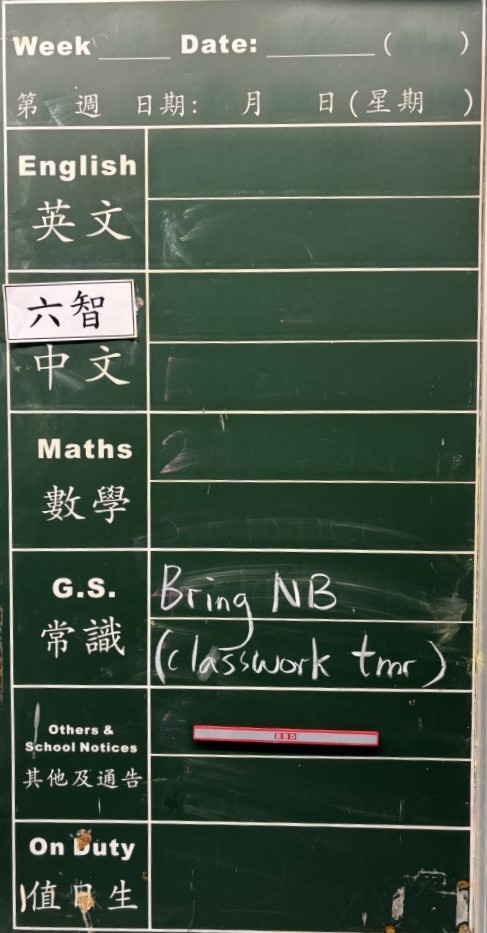 Week ____ Date: ________ (    )
第 週 日期: 月 日 (星期 )
English
英文
六智
中文
Maths
數學
G.S.
常識
Bring NB
(classwork tmr)
Others &
School Notices
其他及通告
On Duty
值日生